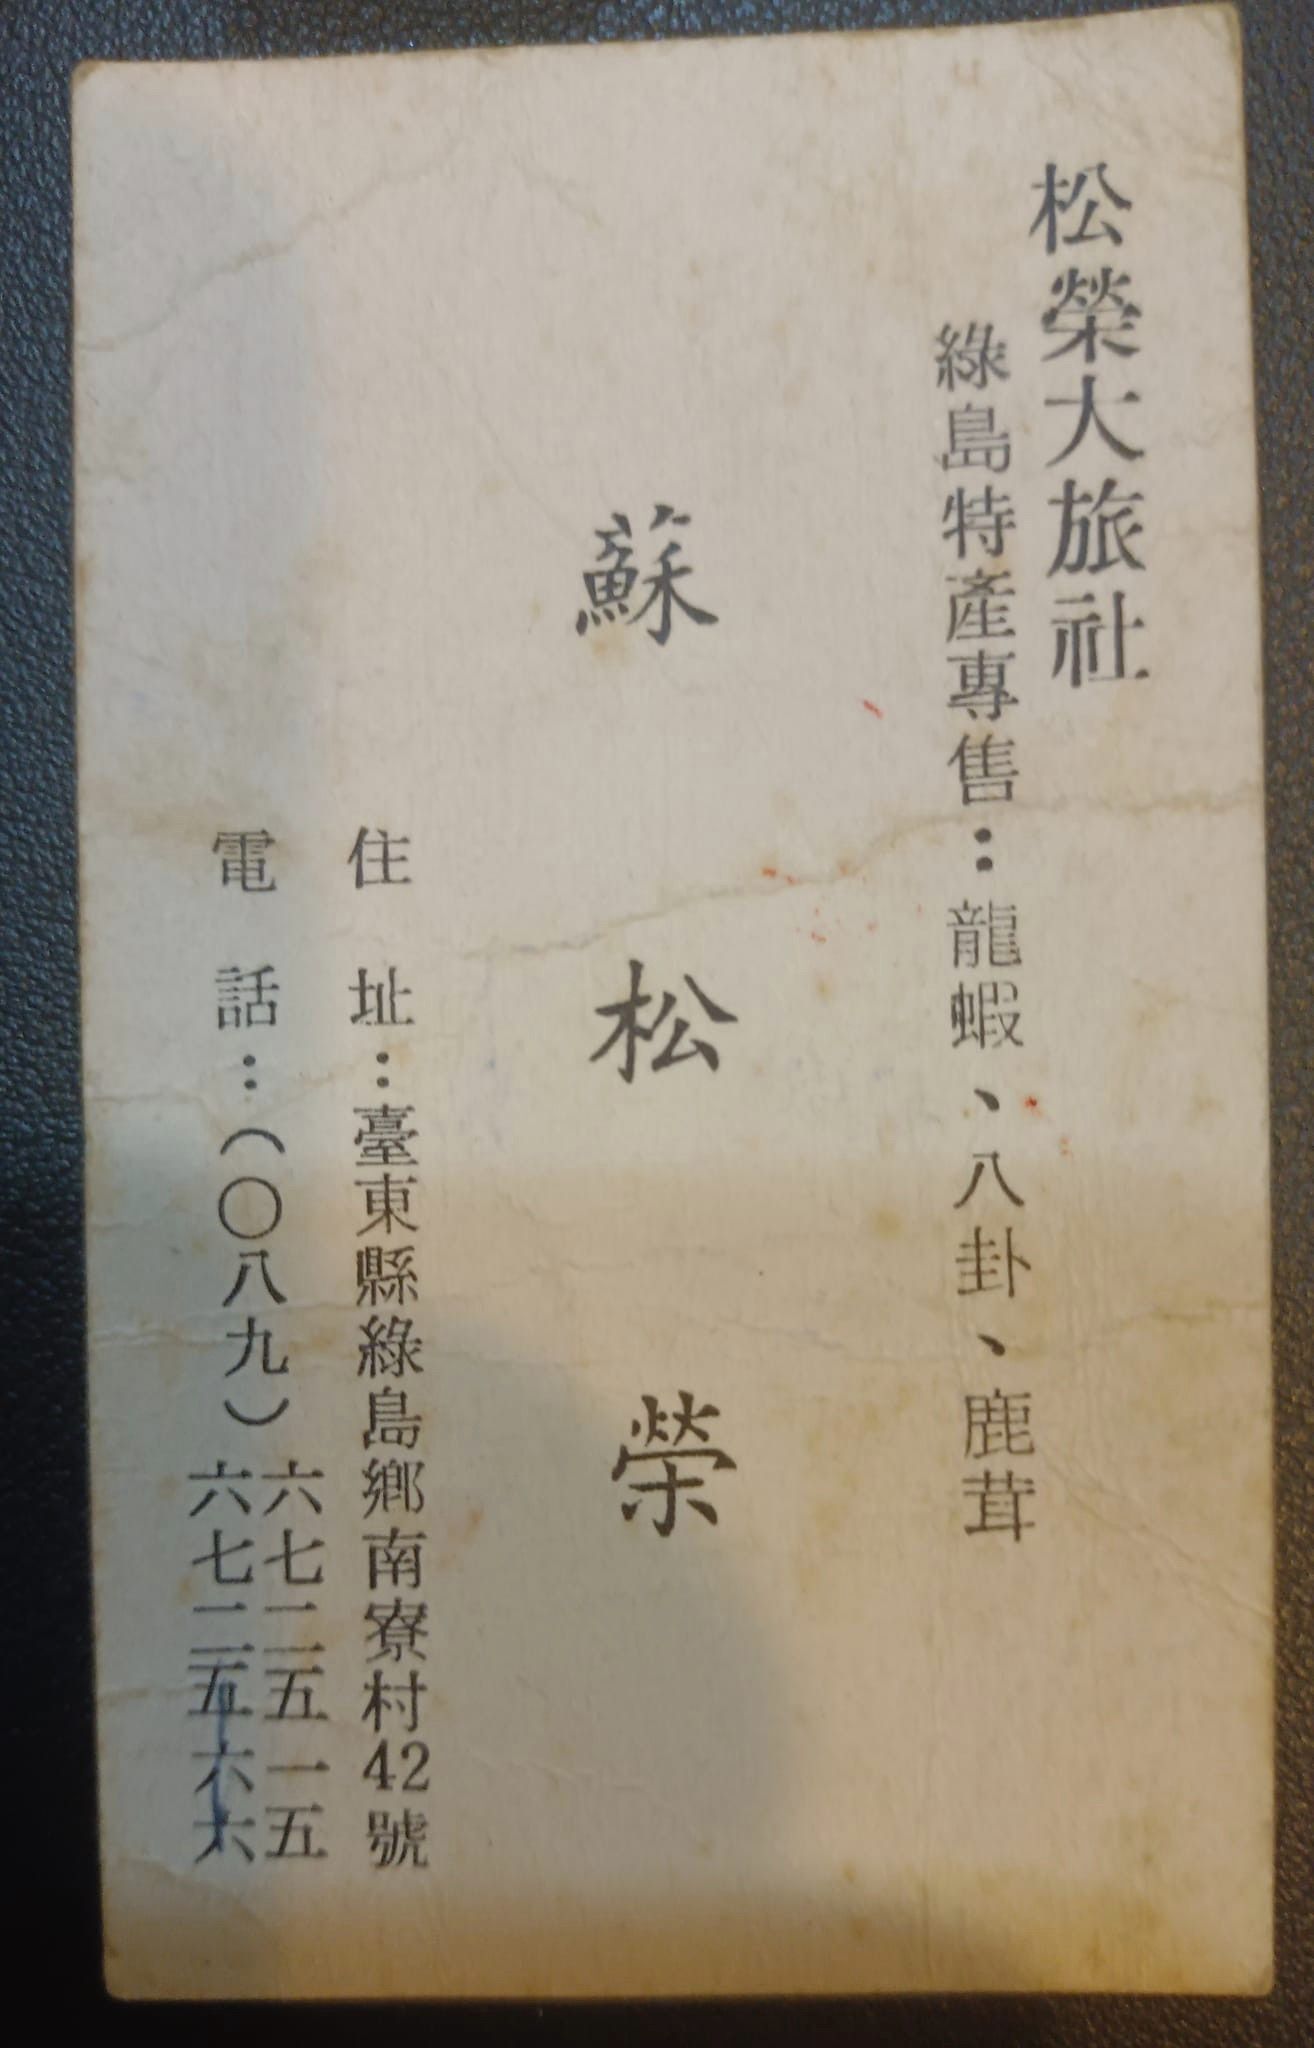 松榮大旅社
綠島特產專售：龍蝦、八卦、鹿茸
蘇松榮
住址：臺東縣綠島鄉南寮村42號
電話：(〇八九)六七二五一五
六七二五六六